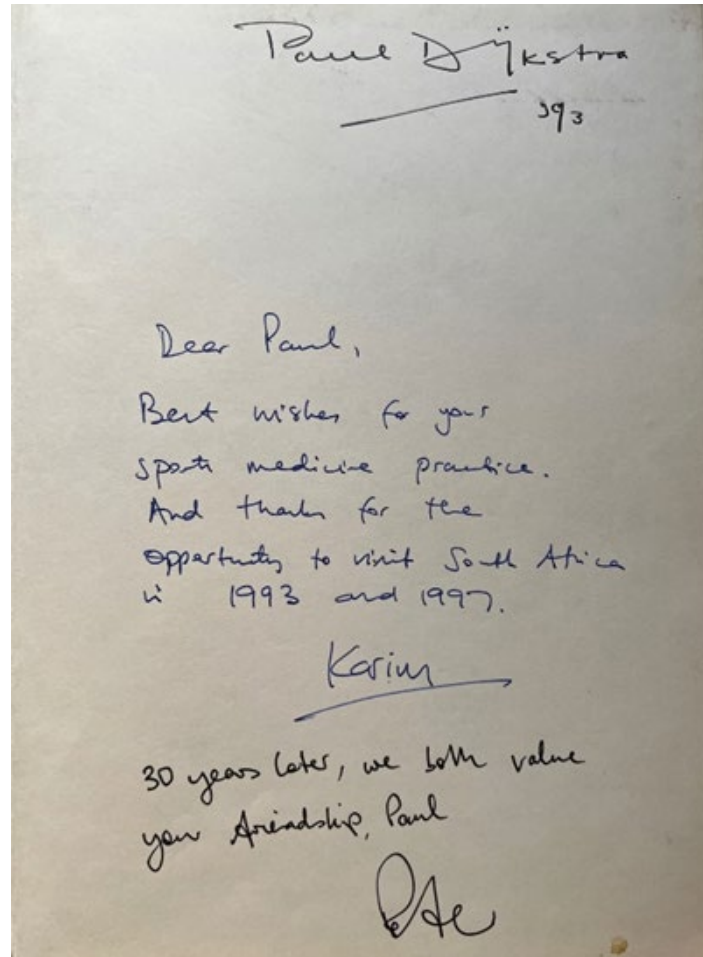 Paul Dijkstra
1993
Dear Paul,
Best wishes for your
sports medicine practice.
And thanks for the
opportunity to visit South Africa
in 1993 and 1997.
Karim
30 years later, we both value
your friendship, Paul
Peter